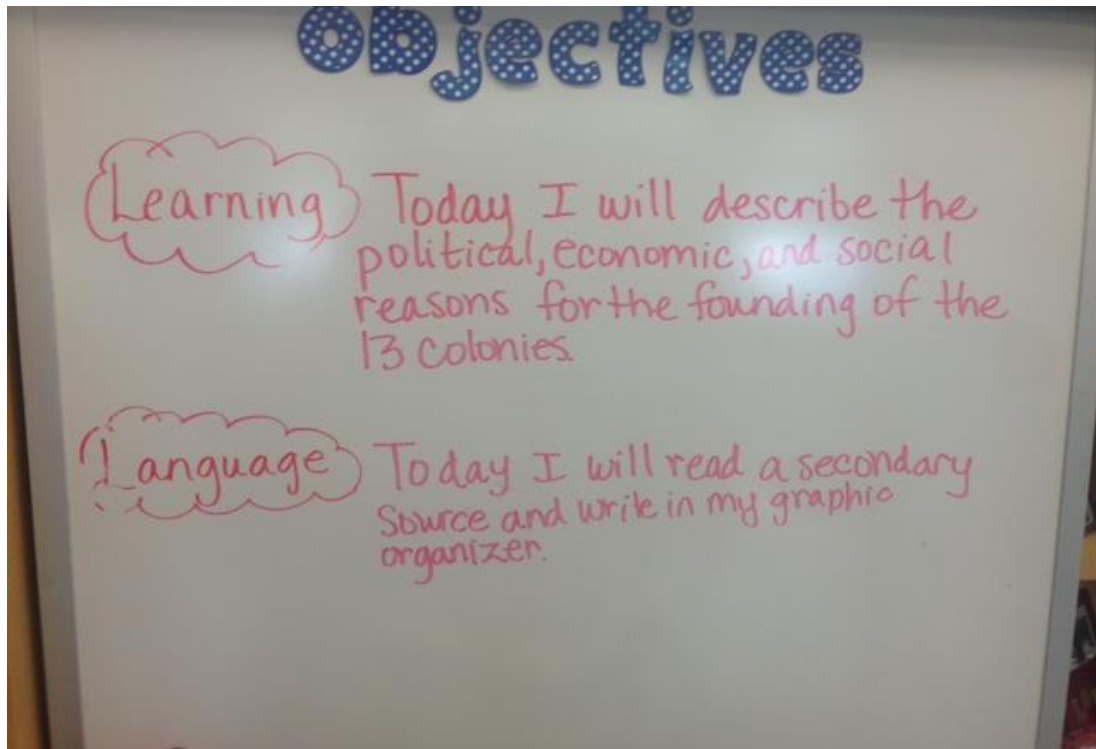 objectives
Learning Today I will describe the
political, economic, and social
reasons for the founding of the
13 colonies.
Language Today I will read a secondary
source and write in my graphic
organizer.